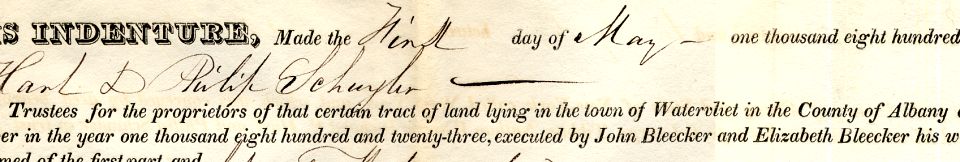 S INDENTURE, Made the First day of May one thousand eight hundred
Hart & Philip Schuyler
Trustees for the proprietors of that certain tract of land lying in the town of Watervliet in the County of Albany
er in the year one thousand eight hundred and twenty-three, executed by John Bleecker and Elizabeth Bleecker his w
med of the first part, and